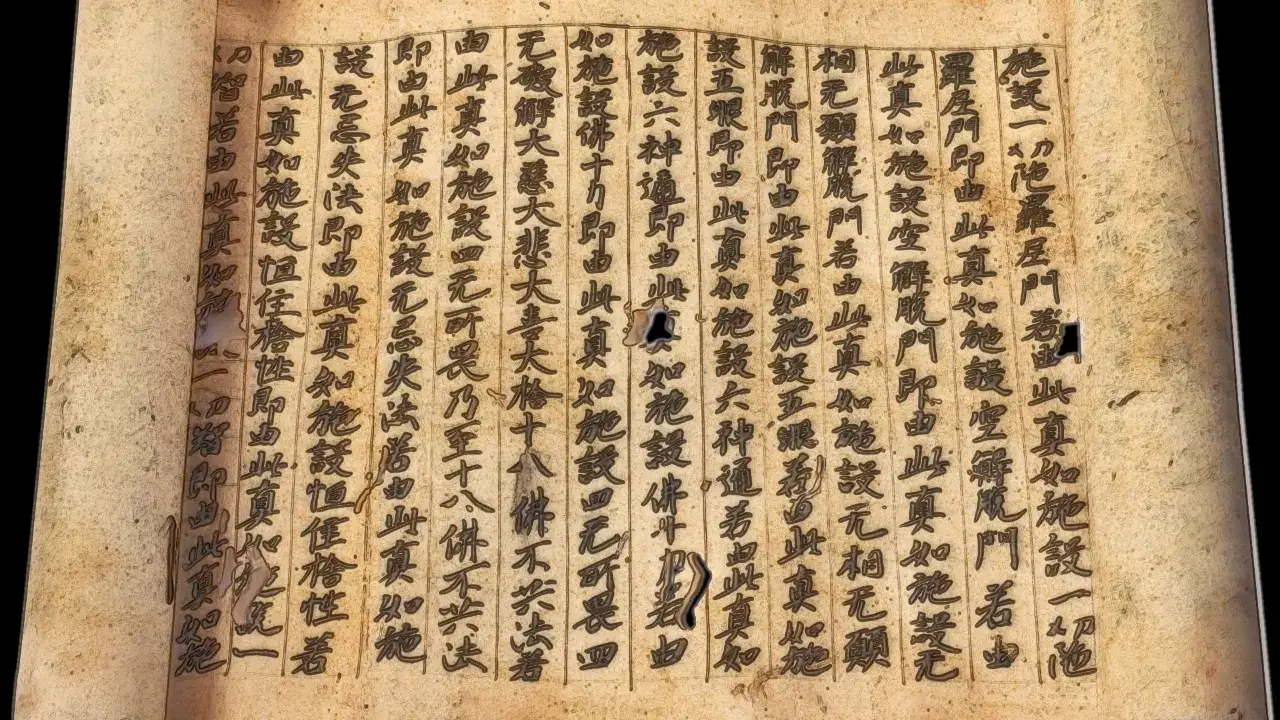 施設一切陁羅尼門若由此真如施設一切陁
羅尼門即由此真如施設空解脫門若由
此真如施設空解脫門即由此真如施設无
相无願解脫門若由此真如施設无相无願
解脫門即由此真如施設五眼若由此真如施
設五眼即由此真如施設六神通若由此真如
施設六神通即由此真如施設佛十力若由
如施設佛十力即由此真如施設四无所畏四
无礙解大慈大悲大喜大捨十八佛不共法若
由此真如施設四无所畏乃至十八佛不共法
即由此真如施設无忘失法若由此真如施
設无忘失法即由此真如施設恒住捨性若
由此真如施設恒住捨性即由此真如一
切智若由此真如施一切智即由此真如施